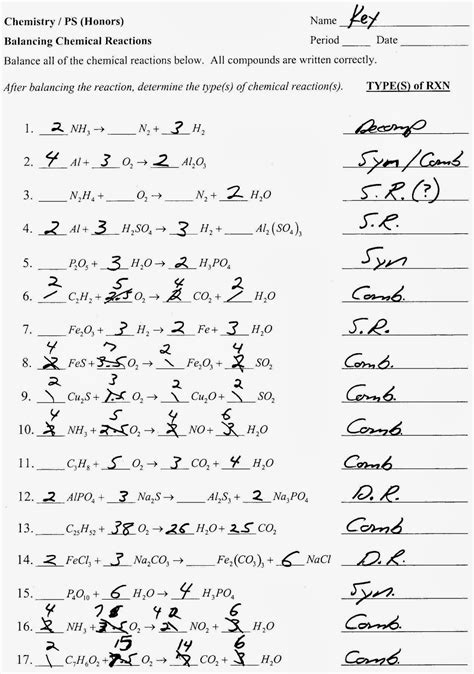 Chemistry / PS (Honors) Name Key
Balancing Chemical Reactions Period ____ Date ____
Balance all of the chemical reactions below. All compounds are written correctly.
After balancing the reaction, determine the type(s) of chemical reaction(s). TYPE(S) of RXN
1. 2 NH₃ → ___ N₂ + 3 H₂ Decomp
2. 4 Al + 3 O₂ → 2 Al₂O₃ Syn/Comb
3. ___ N₂H₄ + ___ O₂ → ___ N₂ + 2 H₂O S.R.(?)
4. 2 Al + 3 H₂SO₄ → 3 H₂ + ___ Al₂(SO₄)₃ S.R.
5. ___ P₂O₅ + 3 H₂O → 2 H₃PO₄ Syn
6. 2 C₂H₂ + 5 O₂ → 4 CO₂ + 2 H₂O Comb.
7. ___ Fe₂O₃ + 3 H₂ → 2 Fe + 3 H₂O S.R.
8. 4 FeS + 7 O₂ → 2 Fe₂O₃ + 4 SO₂ Comb.
9. 2 Cu₂S + 3 O₂ → 2 Cu₂O + 2 SO₂ Comb.
10. 4 NH₃ + 5 O₂ → 4 NO + 6 H₂O Comb.
11. ___ C₃H₈ + 5 O₂ → 3 CO₂ + 4 H₂O Comb
12. 2 AlPO₄ + 3 Na₂S → ___ Al₂S₃ + 2 Na₃PO₄ D.R.
13. ___ C₂₅H₅₂ + 38 O₂ → 26 H₂O + 25 CO₂ Comb
14. 2 FeCl₃ + 3 Na₂CO₃ → ___ Fe₂(CO₃)₃ + 6 NaCl D.R.
15. ___ P₄O₁₀ + 6 H₂O → 4 H₃PO₄ Syn.
16. 4 NH₃ + O₂ → 4 NO₂ + 6 H₂O Comb.
17. 2 C₇H₆O₂ + 15 O₂ → 14 CO₂ + 6 H₂O Comb.